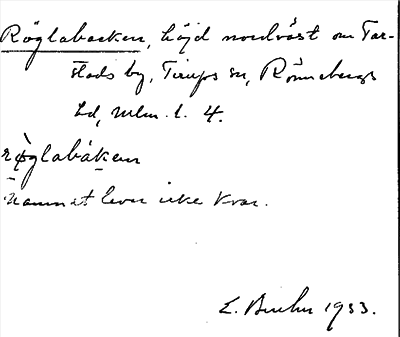 Röglabacken, höjd nordväst om Tar-
stads by, Tirups sn, Rönnebergs
hd, Mlm. l. 4.
rø̀glabákεn
Namnet lever icke kvar.
E. 1933.